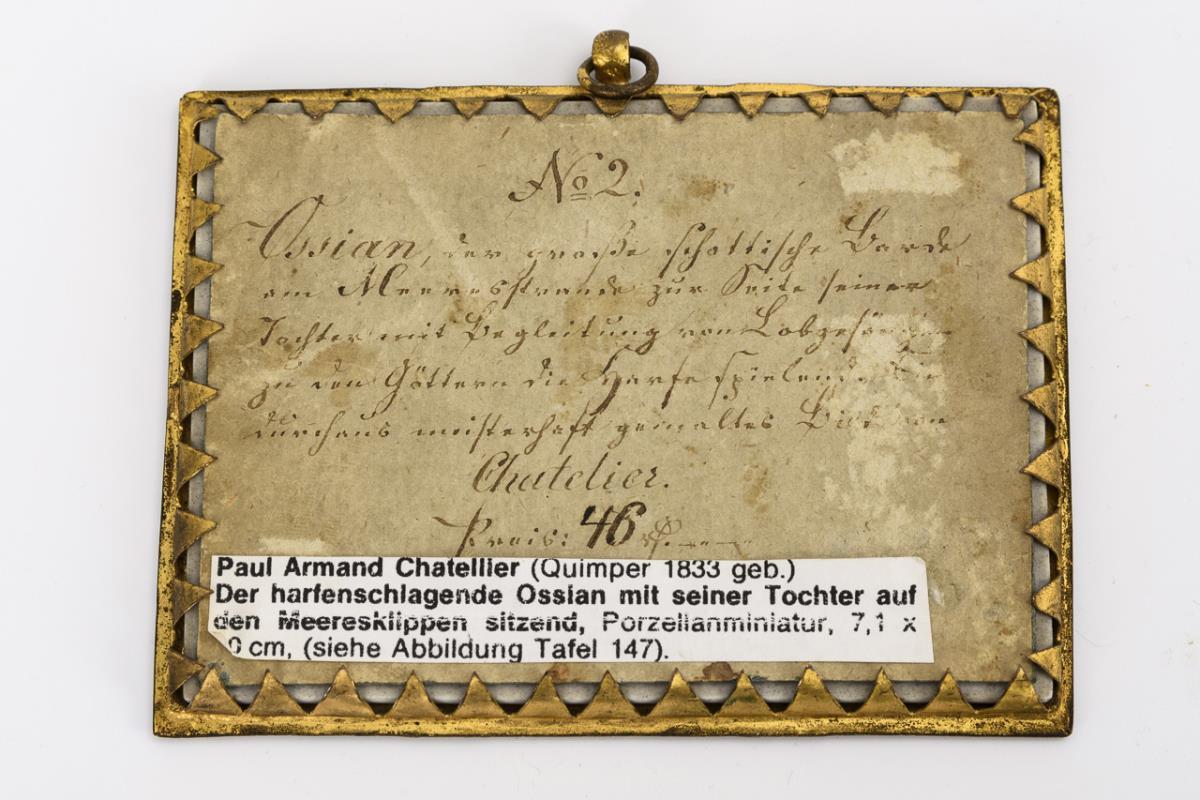 No 2.
Ossian, der große schottische Barde
am Meeresstrande zur Seite seiner
Tochter mit Begleitung von Lobgesängen
zu den Göttern die Harfe spielend. Ein
durchaus meisterhaft gemaltes Bild von
Chatelier.
Preis: 46
Paul Armand Chatellier (Quimper 1833 geb.)
Der harfenschlagende Ossian mit seiner Tochter auf
den Meeresklippen sitzend, Porzellanminiatur, 7,1 x
0 cm, (siehe Abbildung Tafel 147).